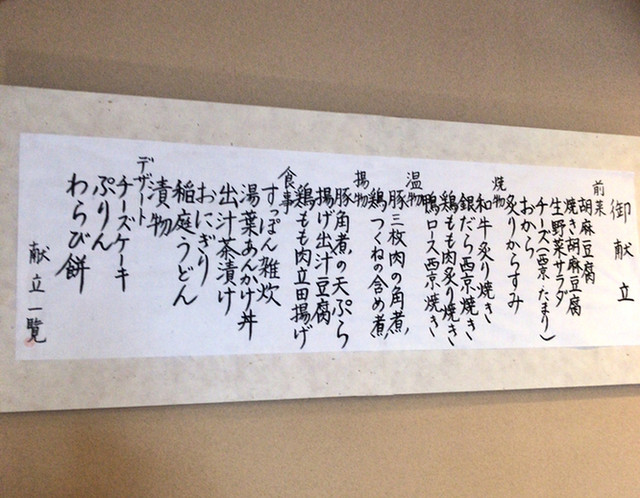 御献立
前菜
胡麻豆腐
焼き胡麻豆腐
生野菜サラダ
チーズ(西京・たまり)
おから
炙りからすみ
焼物
和牛炙り焼き
銀だら西京焼き
鶏もも肉炙り焼き
鴨ロース西京焼き
温物
豚三枚肉の角煮
鶏つくねの含め煮
揚物
豚角煮の天ぷら
揚げ出汁豆腐
鶏もも肉立田揚げ
食事
すっぽん雑炊
湯葉あんかけ丼
出汁茶漬け
おにぎり
稲庭うどん
漬物
デザート
チーズケーキ
ぷりん
わらび餅
献立一覧